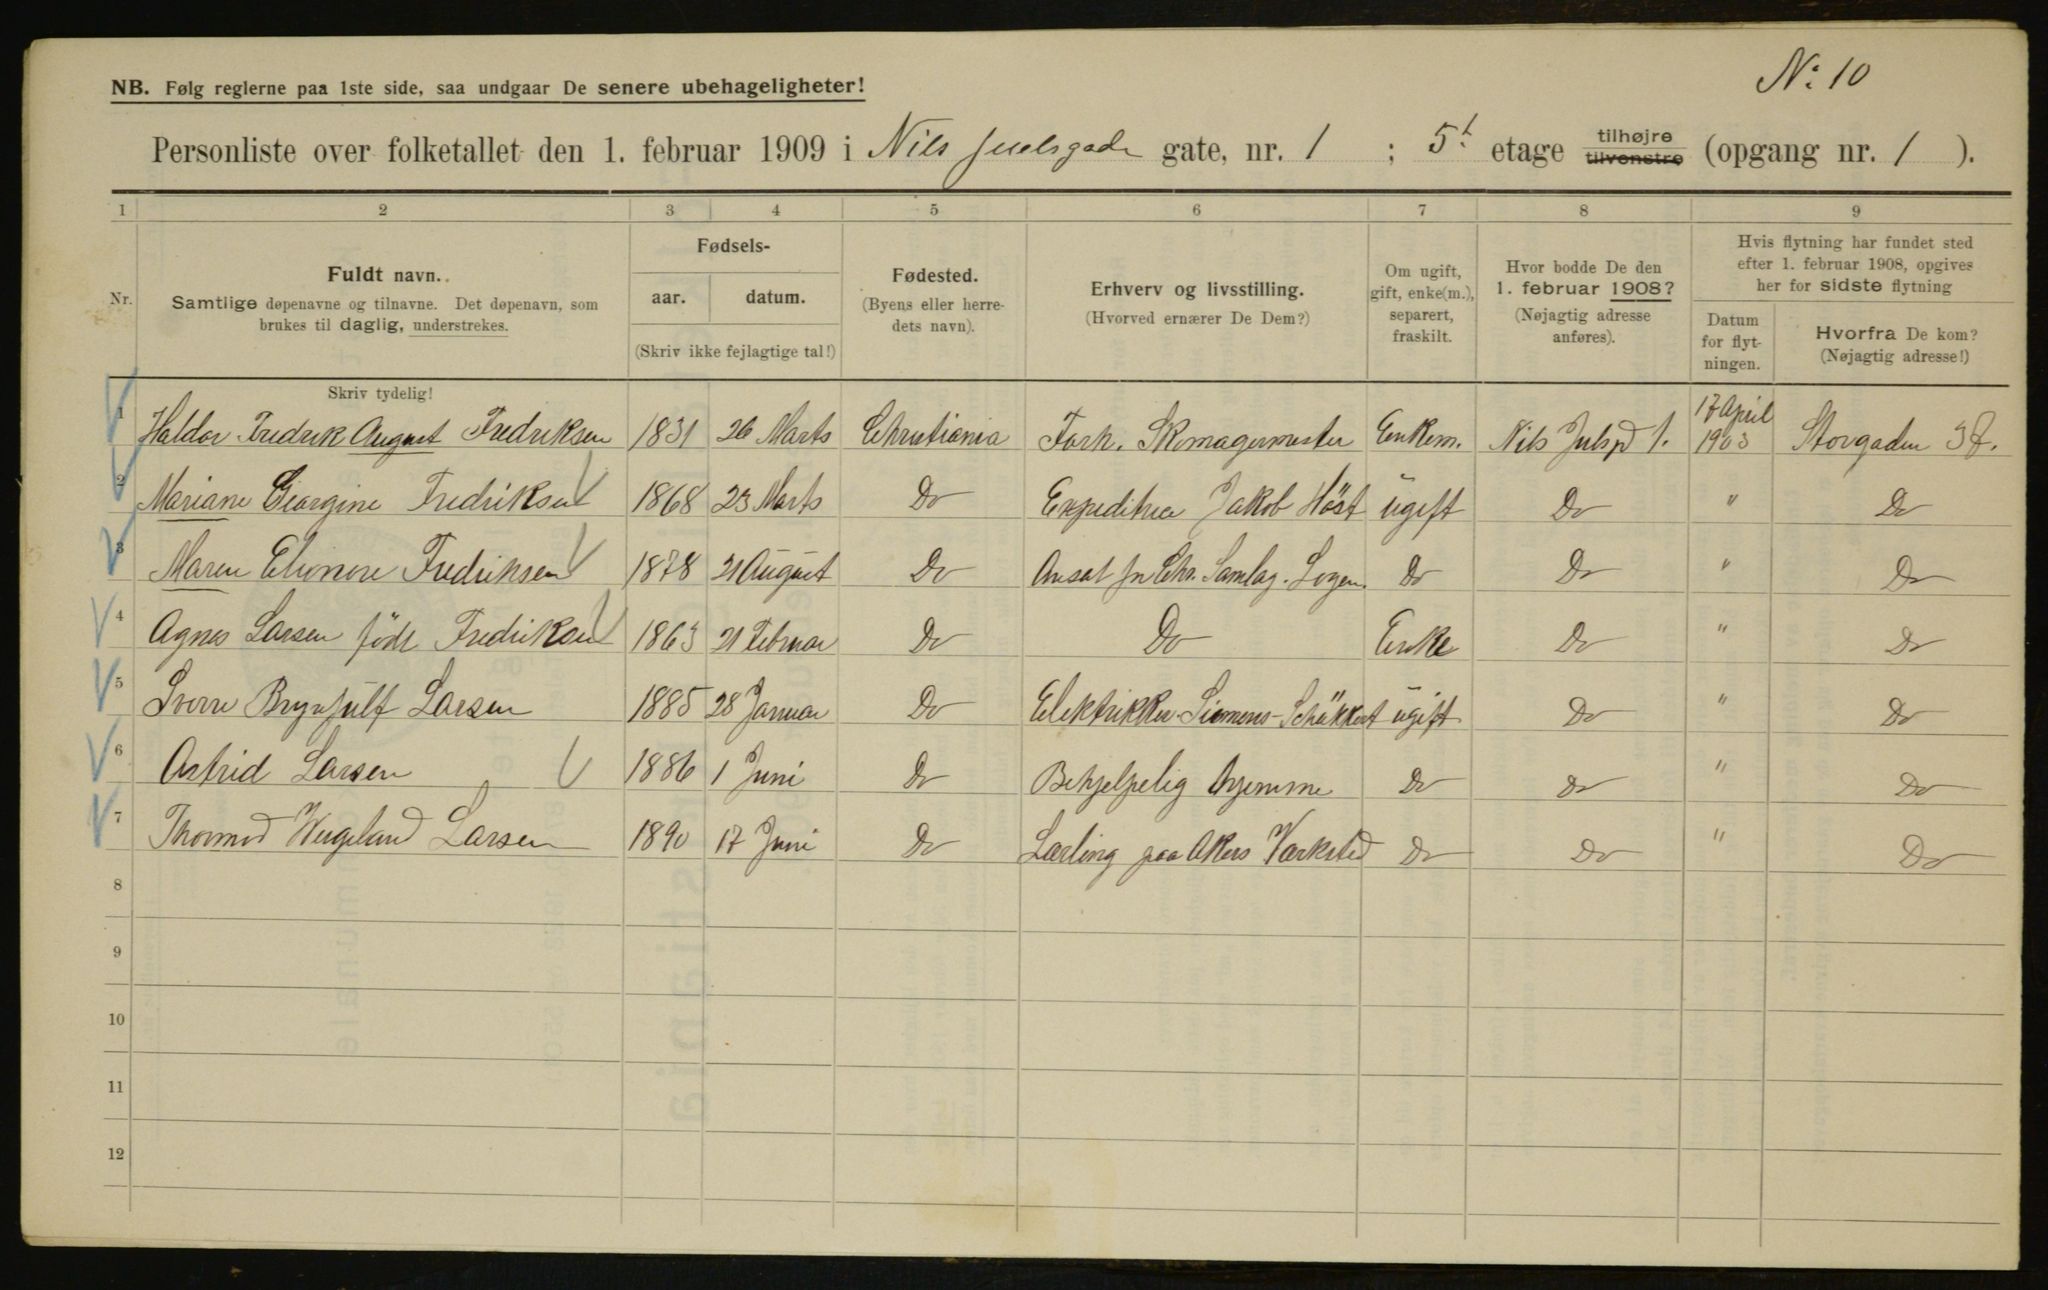 Nº 10
NB. Følg reglerne paa 1ste side, saa undgaar De senere ubehageligheter!
Personliste over folketallet den 1. februar 1909 i Nils Juelsgade gate, nr. 1 ; 5t etage tilhøjre tilvenstre (opgang nr. 1 ).
1 2 3 4 5 6 7 8 9
Nr.
Fuldt navn.
Samtlige døpenavne og tilnavne. Det døpenavn, som
brukes til daglig, understrekes.
Skriv tydelig!
Fødsels-
aar. datum.
(Skriv ikke fejlagtige tal!)
Fødested.
(Byens eller herre-
dets navn).
Erhverv og livsstilling.
(Hvorved ernærer De Dem?)
Om ugift,
gift, enke(m.),
separert,
fraskilt.
Hvor bodde De den
1. februar 1908?
(Nøjagtig adresse
anføres).
Hvis flytning har fundet sted
efter 1. februar 1908, opgives
her for sidste flytning
Datum
for flyt-
ningen.
Hvorfra De kom?
(Nøjagtig adresse!)
1 Haldor Fredrik August Fredriksen 1831 26 Marts Christiania Forh. Skomagermester Enkem. Nils Julsg 1. 17 April 1903 Storgaden
2 Mariane Georgine Fredriksen 1868 23 Marts Do Expeditrice Jakob Höst ugift Do " Do
3 Maren Elionore Fredriksen 1878 21 August Do Ansat Chr. Samlag. Logen. Do Do " Do
4 Agnes Larsen födt Fredriksen 1863 21 Februar Do Do Enke Do " Do
5 Sverre Brynjulf Larsen 1885 28 Januar Do Elektrikker Siemens-Schükkert ugift Do " Do
6 Astrid Larsen 1886 1 Juni Do Behjelpelig hjemme Do Do " Do
7 Thormod Wergeland Larsen 1890 17 Juni Do Lærling paa Akers Værksted Do Do " Do
8
9
10
11
12